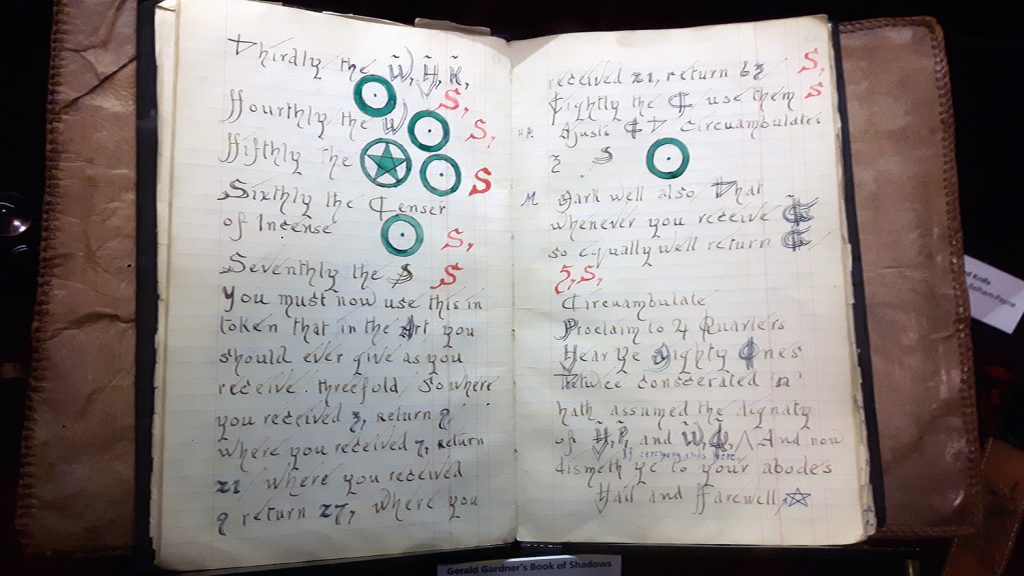 Thirdly the W̃, H̃, K̃,
S,
ffourthly the W̃)
S,
ffifthly the
S
Sixthly the Censer
of Incense
S,
Seventhly the S S
You must now use this in
token that in the Art you
should ever give as you
receive threefold So where
you received 3, return 9
where you received 7, return
21 where you received
9 return 27, where you
received 21, return 63 S,
Eightly the C use them S
circuambulates
3 S
M Mark well also that
whenever you receive
so equally well return
S,S,
Circuambulate
Proclaim to 4 Quarters
Hear Ye Mighty Ones
twice conscerated 'n'
hath assumed the dignaty
of H̃,P̃, and W̃,Q̃, And now
If ceremony ends here
dismeth ye to your abodes
Hail and ffarewell,
Gerald Gardner's Book of Shadows
Knife